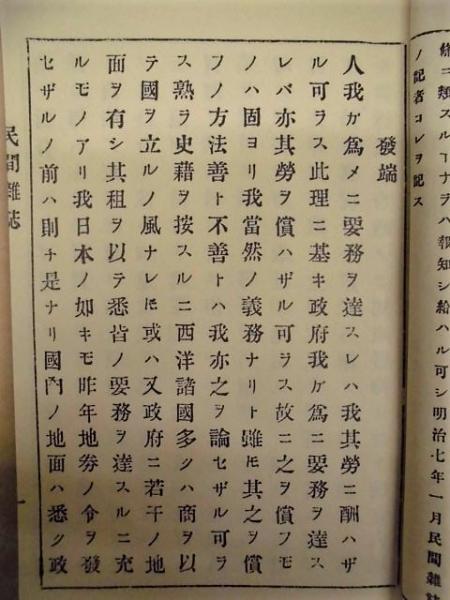 條ニ類スルヿナラハ報知シ給ハル可シ明治七年一月民間雜誌
ノ記者コレヲ記ス
發端
人我カ爲メニ要務ヲ達スレハ我其勞ニ酬ハザ
ル可ラス此理ニ基キ政府我カ爲ニ要務ヲ達ス
レバ亦其勞ヲ償ハザル可ラス故ニ之ヲ償フモ
ノハ固ヨリ我當然ノ義務ナリト雖𪜈其之ヲ償
フノ方法善ト不善トハ我亦之ヲ論セザル可ラ
ス熟ラ史藉ヲ按スルニ西洋諸國多クハ商ヲ以
テ國ヲ立ルノ風ナレ𪜈或ハ又政府ニ若干ノ地
面ヲ有シ其租ヲ以テ悉皆ノ要務ヲ達スルニ充
ルモノアリ我日本ノ如キモ昨年地劵ノ令ヲ發
セザルノ前ハ則チ是ナリ國内ノ地面ハ悉ク政
民間雜誌